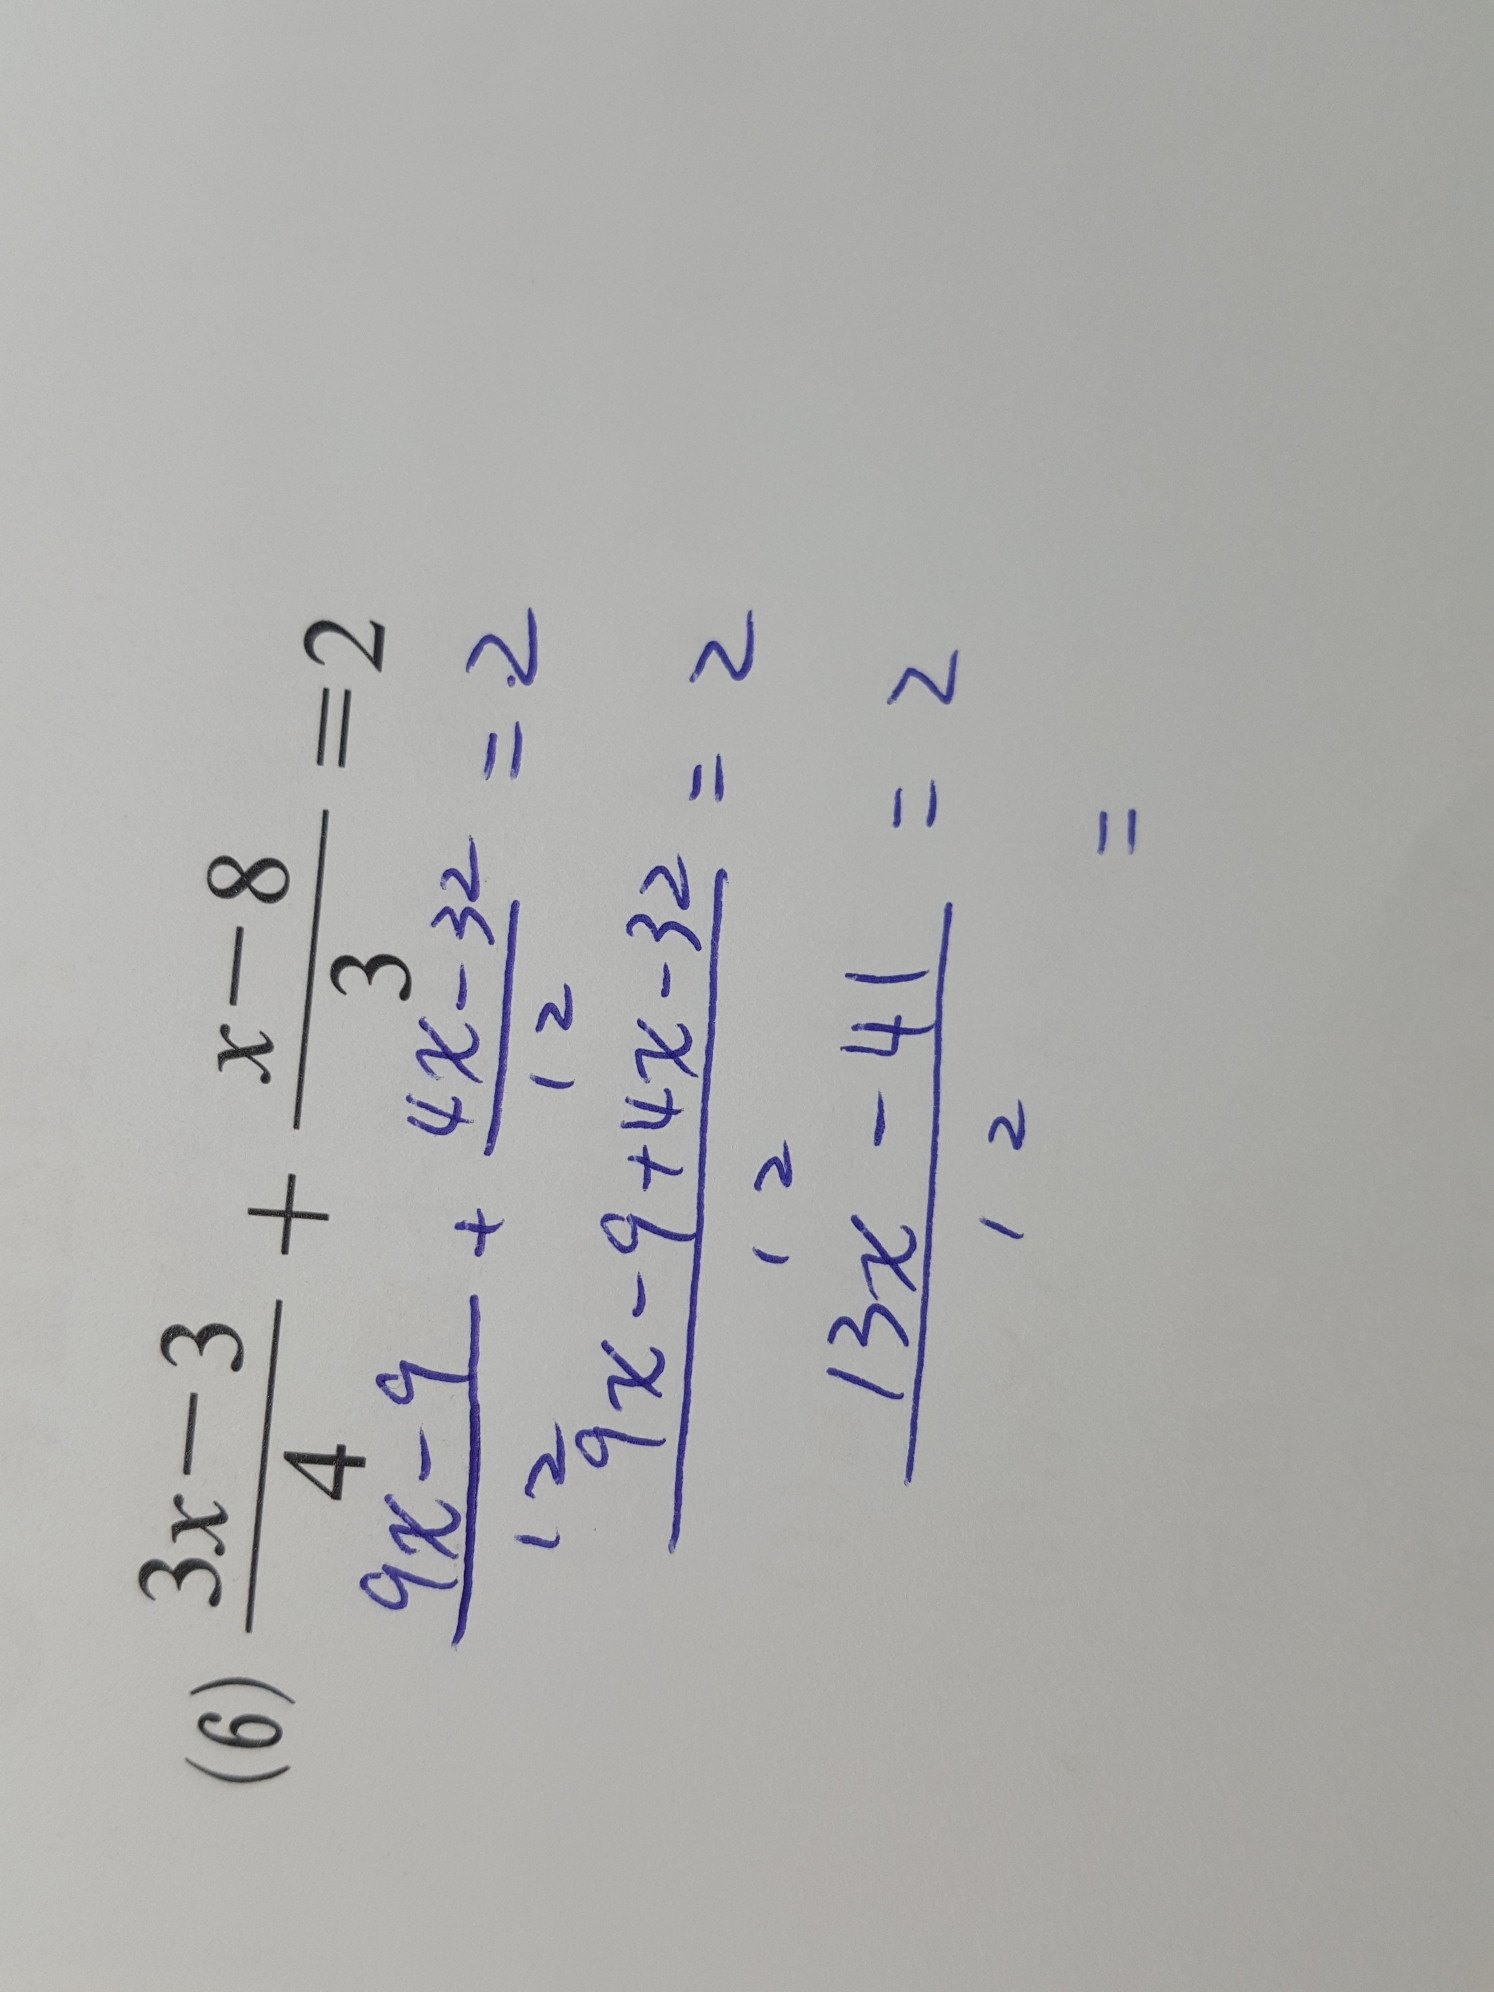 (6) \frac{3x-3}{4} + \frac{x-8}{3} = 2
\frac{9x-9}{12} + \frac{4x-32}{12} = 2
\frac{9x-9+4x-32}{12} = 2
\frac{13x-41}{12} = 2
=